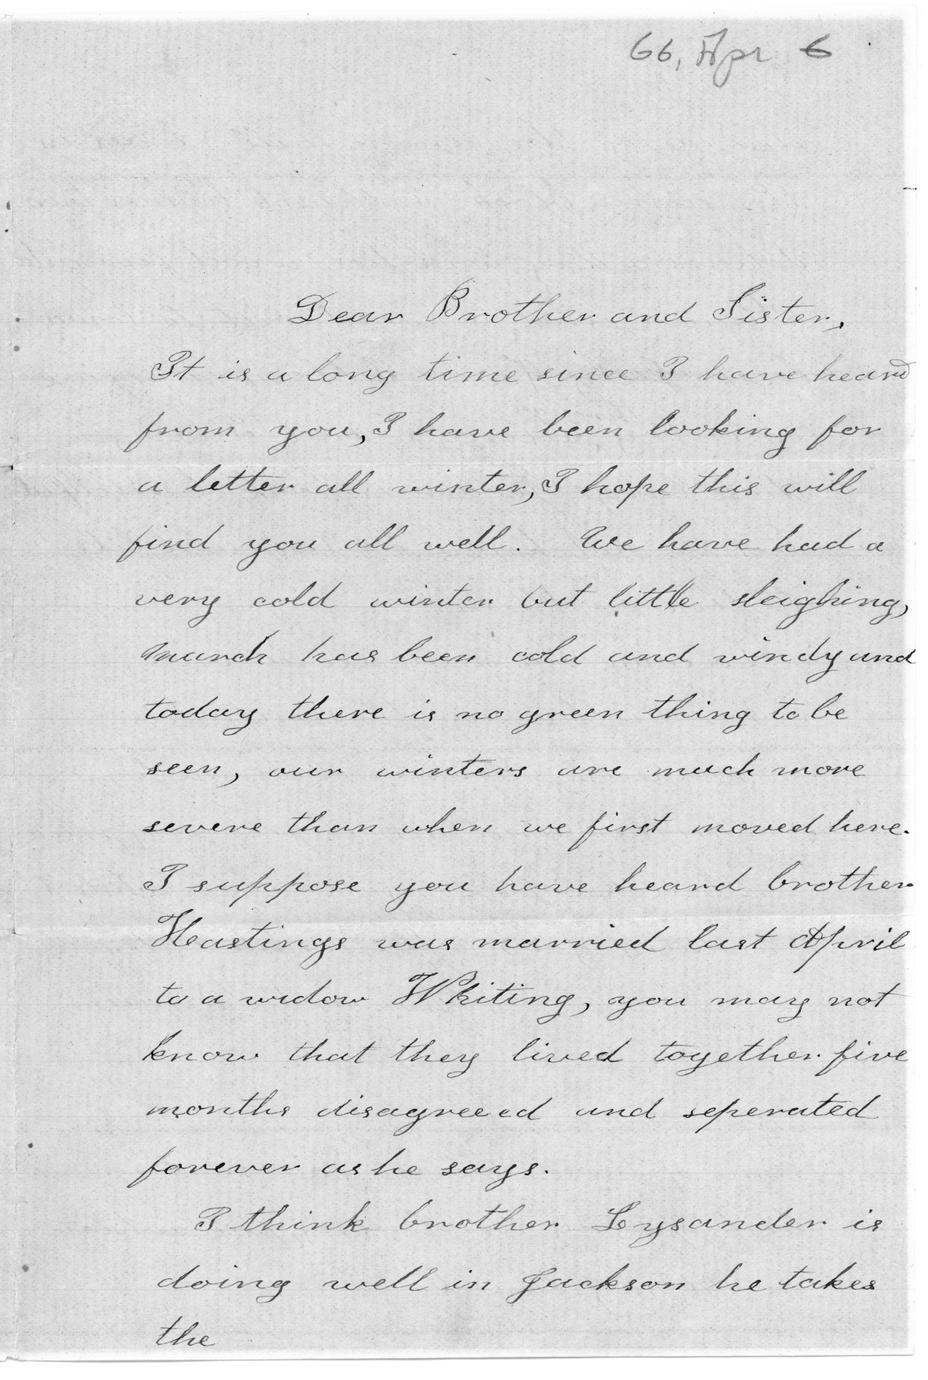 66, Apr 6
Dear Brother and Sister,
It is a long time since I have heard
from you, I have been looking for
a letter all winter, I hope this will
find you all well. We have had a
very cold winter but little sleighing,
March has been cold and windy and
today there is no green thing to be
seen, our winters are much more
severe than when we first moved here.
I suppose you have heard brother
Hastings was married last April
to a widow Whiting, you may not
know that they lived together five
months disagreeed and seperated
forever as he says.
I think brother Lysander is
doing well in Jackson he takes
the